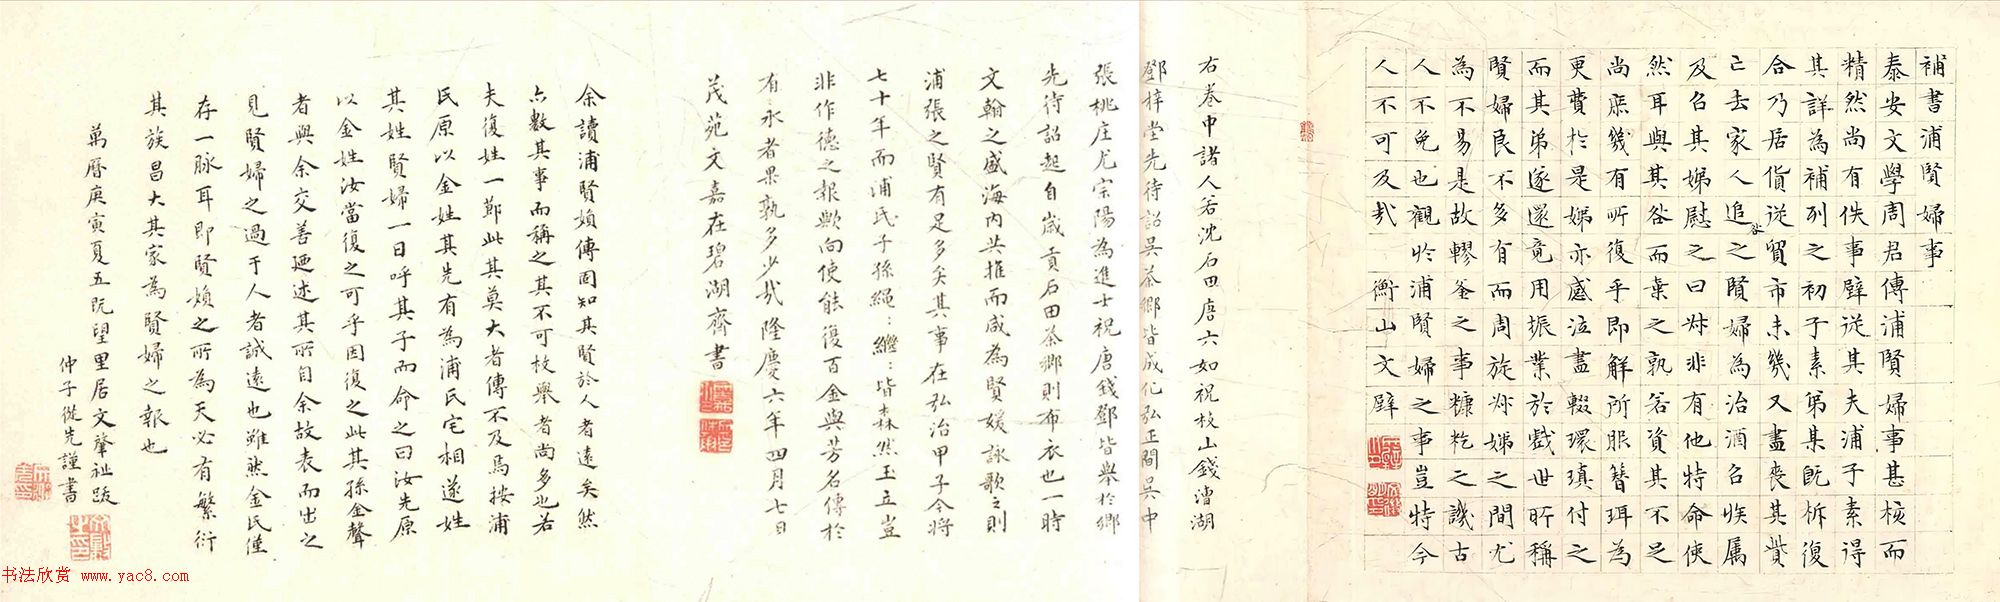 補書浦賢婦事
泰安文學周君傳浦賢婦事甚核而
精然尚有佚事壁従其夫浦子素得
其詳為補列之初子素弟某既柝復
合乃居貨従賈市未幾又盡喪其貲
亡去家人追之賢婦為治酒召族属
及召其娣慰之曰叔非有他特命使
然耳與其咎而棄之孰若資其不足
尚庶幾有所復乎即解所服簪珥為
更費於是娣亦感泣盡輟環瑱付之
而其弟遂還竟用振業於戲世所稱
賢婦良不多有而周旋叔娣之間尤
為不易是故轑釜之事糠籺之譏古
人不免也觀於浦賢婦之事豈特今
人不可及哉 衡山文壁
右卷中諸人若沈石田唐六如祝枝山錢漕湖
鄧梓堂先待詔吳茶鄉皆成化弘正間吳中
張桃庄尤宗陽為進士祝唐錢鄧皆舉於鄉
先待詔起自歲貢石田茶鄉則布衣也一時
文翰之盛海內共推而咸為賢媛詠歌之則
浦張之賢有足多矣其事在弘治甲子今將
七十年而浦氏子孫繩:繼:皆森然玉立豈
非作德之報歟向使能復百金與芳名傳於
有永者果孰多少哉隆慶六年四月七日
茂苑文嘉在碧湖齋書
余讀浦賢媍傳固知其賢於人者遠矣然
亡數其事而稱之其不可枚舉者尚多也若
夫復姓一節此其莫大者傳不及焉按浦
氏原以金姓其先有為浦氏宅相遂姓
其姓賢婦一日呼其子而命之曰汝先原
以金姓汝當復之可乎因復之此其孫金聲
者與余交善廼述其所自余故表而出之
見賢婦之過于人者誠遠也雖然金氏僅
存一脉耳即賢媍之所為天必有繁衍
其族昌大其家為賢婦之報也
萬曆庚寅夏五既望里居文肇祉跋
仲子從先謹書
书法欣赏 www.yac8.com